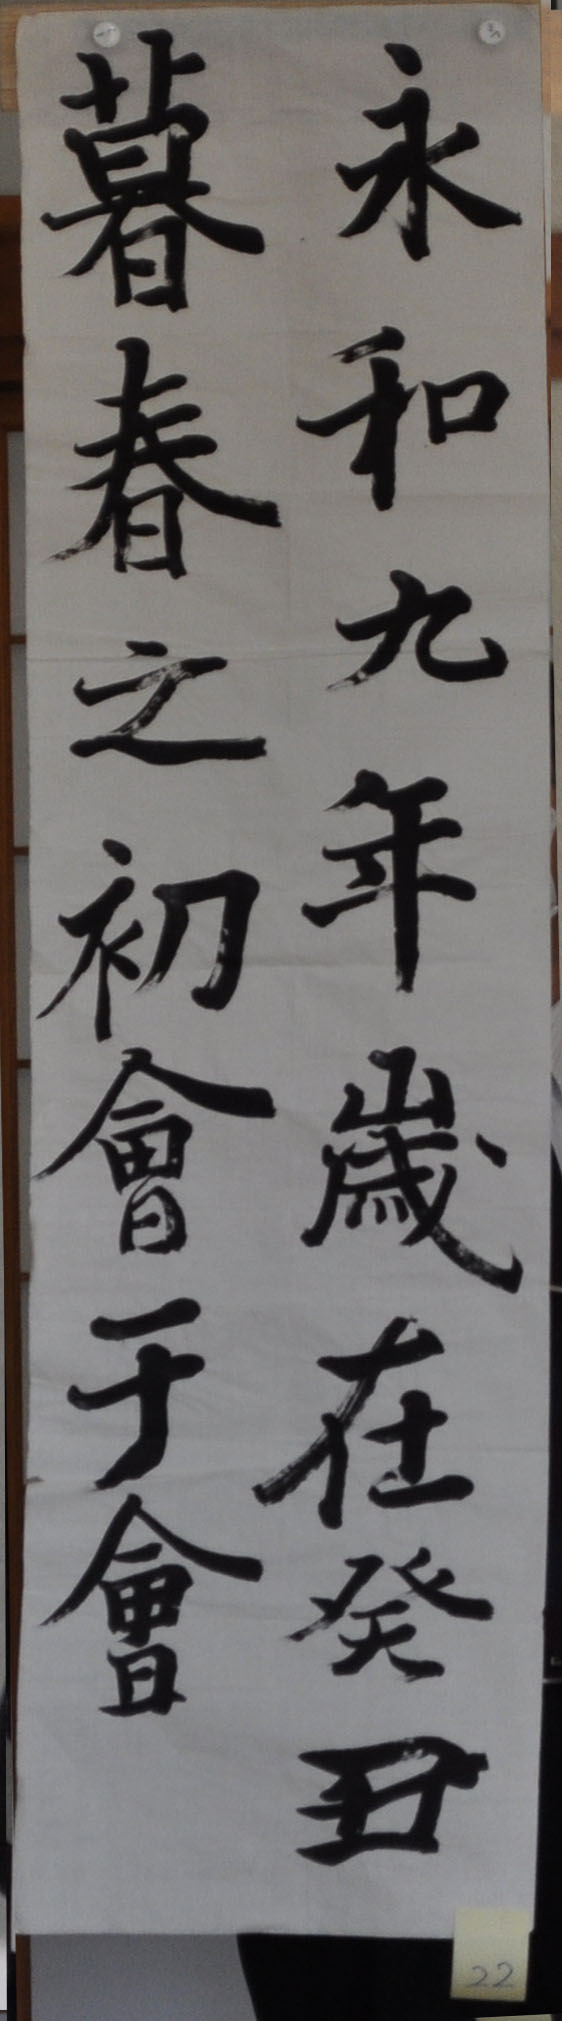 永和九年歳在癸丑
暮春之初會于會
22